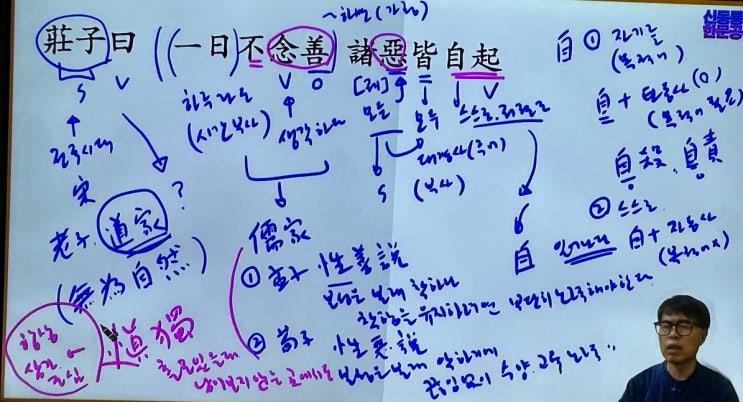 ~하면 (가정)
신동률
한문공
莊子曰 (一日)不念善 諸惡皆自起
S V
V O
[제]
V
하루라도
(시간부사)
생각하다
모든
모두
스스로. 저절로
대명사(주어)
(부사)
S
전국시대
宋
老子 道家 ?
(無為自然)
自 ① 자기를
(목적어)
自 + 타동사(O)
(목적어 필요)
自殺, 自責
② 스스로
自 일어나다 自 + 자동사
儒家
① 孟子 性善說
본성은 본래 착하나
착함을 유지하려면 부단히 노력해야한다
② 荀子 性惡說
본성은 본래 악하기에
끊임없이 수양. 교육 노력
항상
愼獨
홀로 있을 때
남이 보지 않는 곳에서도